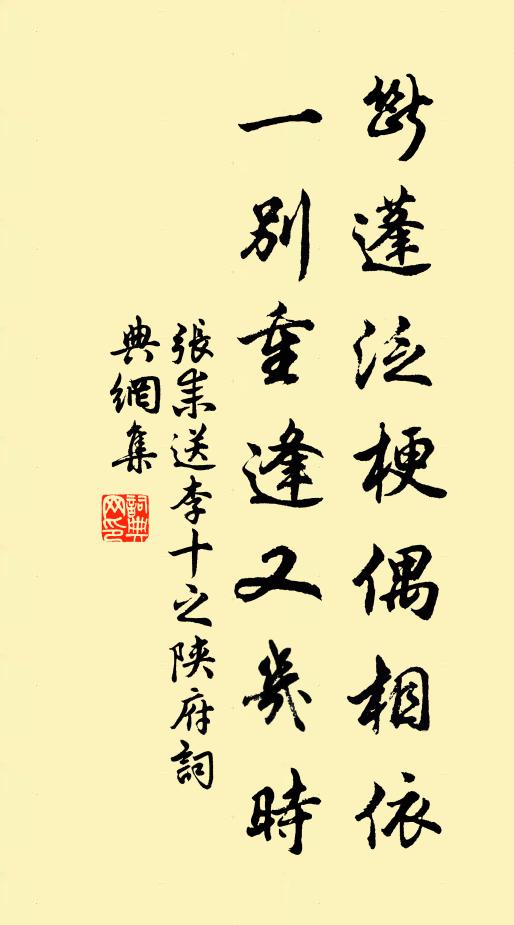 斷蓬泛梗偶相依
一別重逢又幾時
張耒送李十之陝府詞
典網集
詞典網印